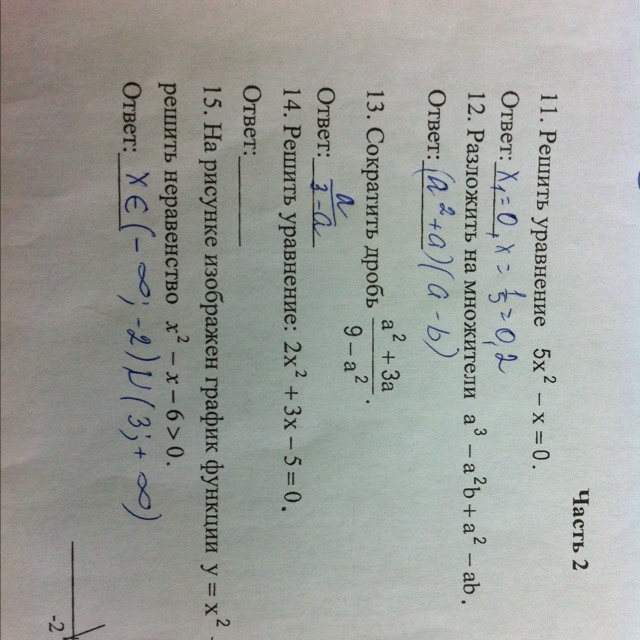 Часть 2
11. Решить уравнение 5x² − x = 0.
Ответ: x₁=0, x = 1/5 = 0,2
12. Разложить на множители a³ − a²b + a² − ab.
Ответ: (a²+a)(a−b)
13. Сократить дробь (a² + 3a)/(9 − a²).
Ответ: a/(3−a)
14. Решить уравнение: 2x² + 3x − 5 = 0.
Ответ:
15. На рисунке изображен график функции y = x² -
решить неравенство x² − x − 6 > 0.
Ответ: x ∈ (−∞; −2) и (3; +∞)
-2